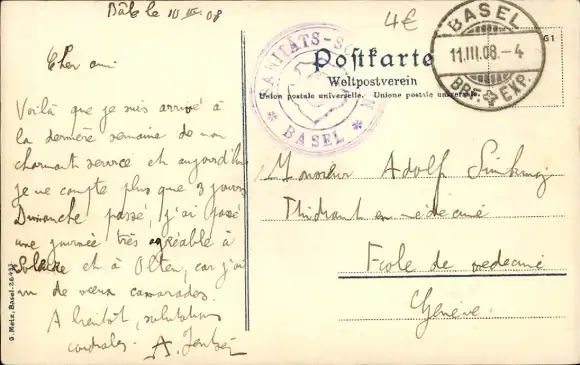 Bâle le 10 III. 08
4€
Cher ami
Voilà que je suis arrivé à
la dernière semaine de mon
charmant service et aujourd'hui
je ne compte plus que 3 jours
Dimanche passé, j'ai passé
une journée très agréable à
Soleure et à Olten, car j'ai
vu de vieux camarades.
A bientôt, salutations
cordiales. A.
SANITÄTS-S
* BASEL *
Postkarte
Weltpostverein
Union postale universelle. Unione postale universale.
G1
BASEL
11.III.08.-4
BRF. EXP.
Monsieur Adolf
Etudiant en médecine
Ecole de médecine
Genève.
G. Metz, Basel.